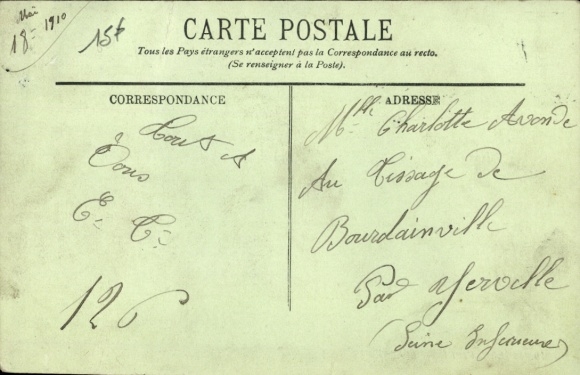 Mai
18 - 1910
15t
CARTE POSTALE
Tous les Pays étrangers n'acceptent pas la Correspondance au recto.
(Se renseigner à la Poste).
CORRESPONDANCE
ADRESSE
Tout A
Vous
E. C.
126
Mlle Charlotte Avonde
Au Tissage de
Bourdainville
Par Yerville
(Seine Inférieure)